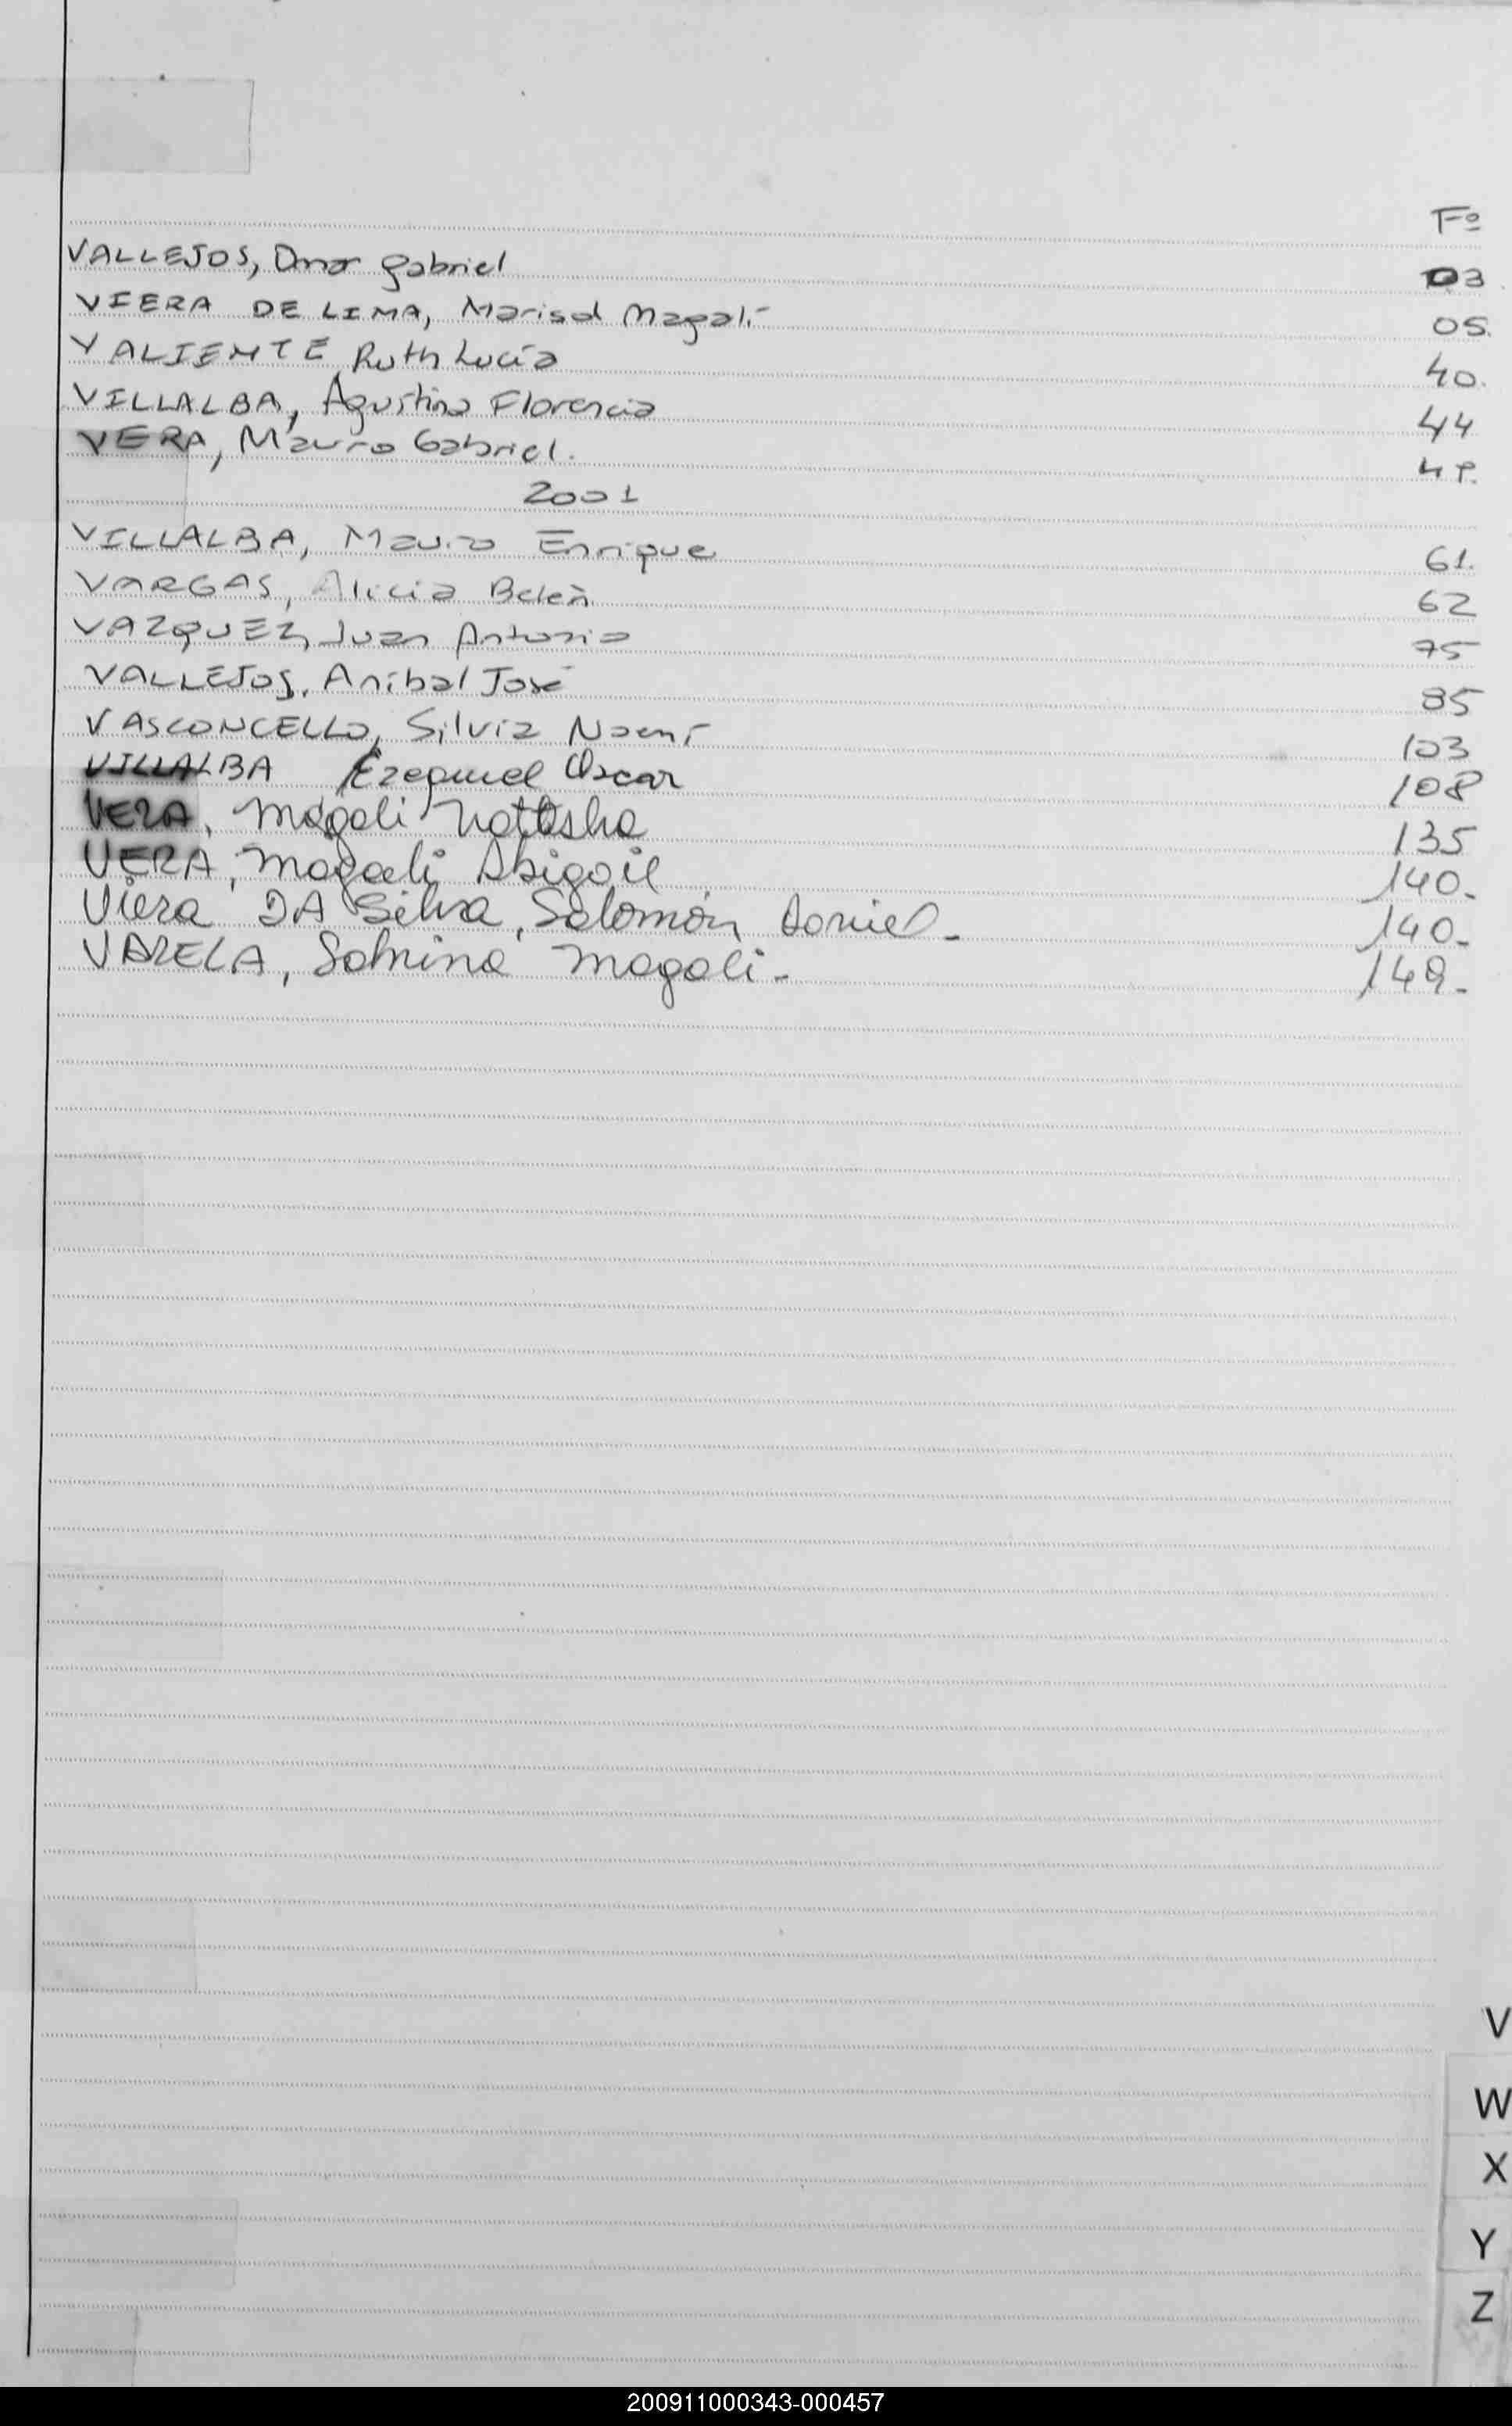 Fº
VALLEJOS, Omar Gabriel 03
VIERA DE LIMA, Marisol Magalí 05.
VALIENTE Ruth Lucía 40.
VILLALBA, Agustina Florencia 44
VERA, Mauro Gabriel. 48.
2001
VILLALBA, Mauro Enrique 61.
VARGAS, Alicia Belén 62
VAZQUEZ, Juan Antonio 75
VALLEJOS, Aníbal José 85
VASCONCELLO, Silvia Noemí 103
VILLALBA Ezequiel Oscar 108
VERA, Magali Natasha 135
VERA, Magali Abigail 140.
Viera DA Silva, Salomón Daniel. 140.
VARELA, Sabrina Magali. 149.
V
W
X
Y
Z
200911000343-000457